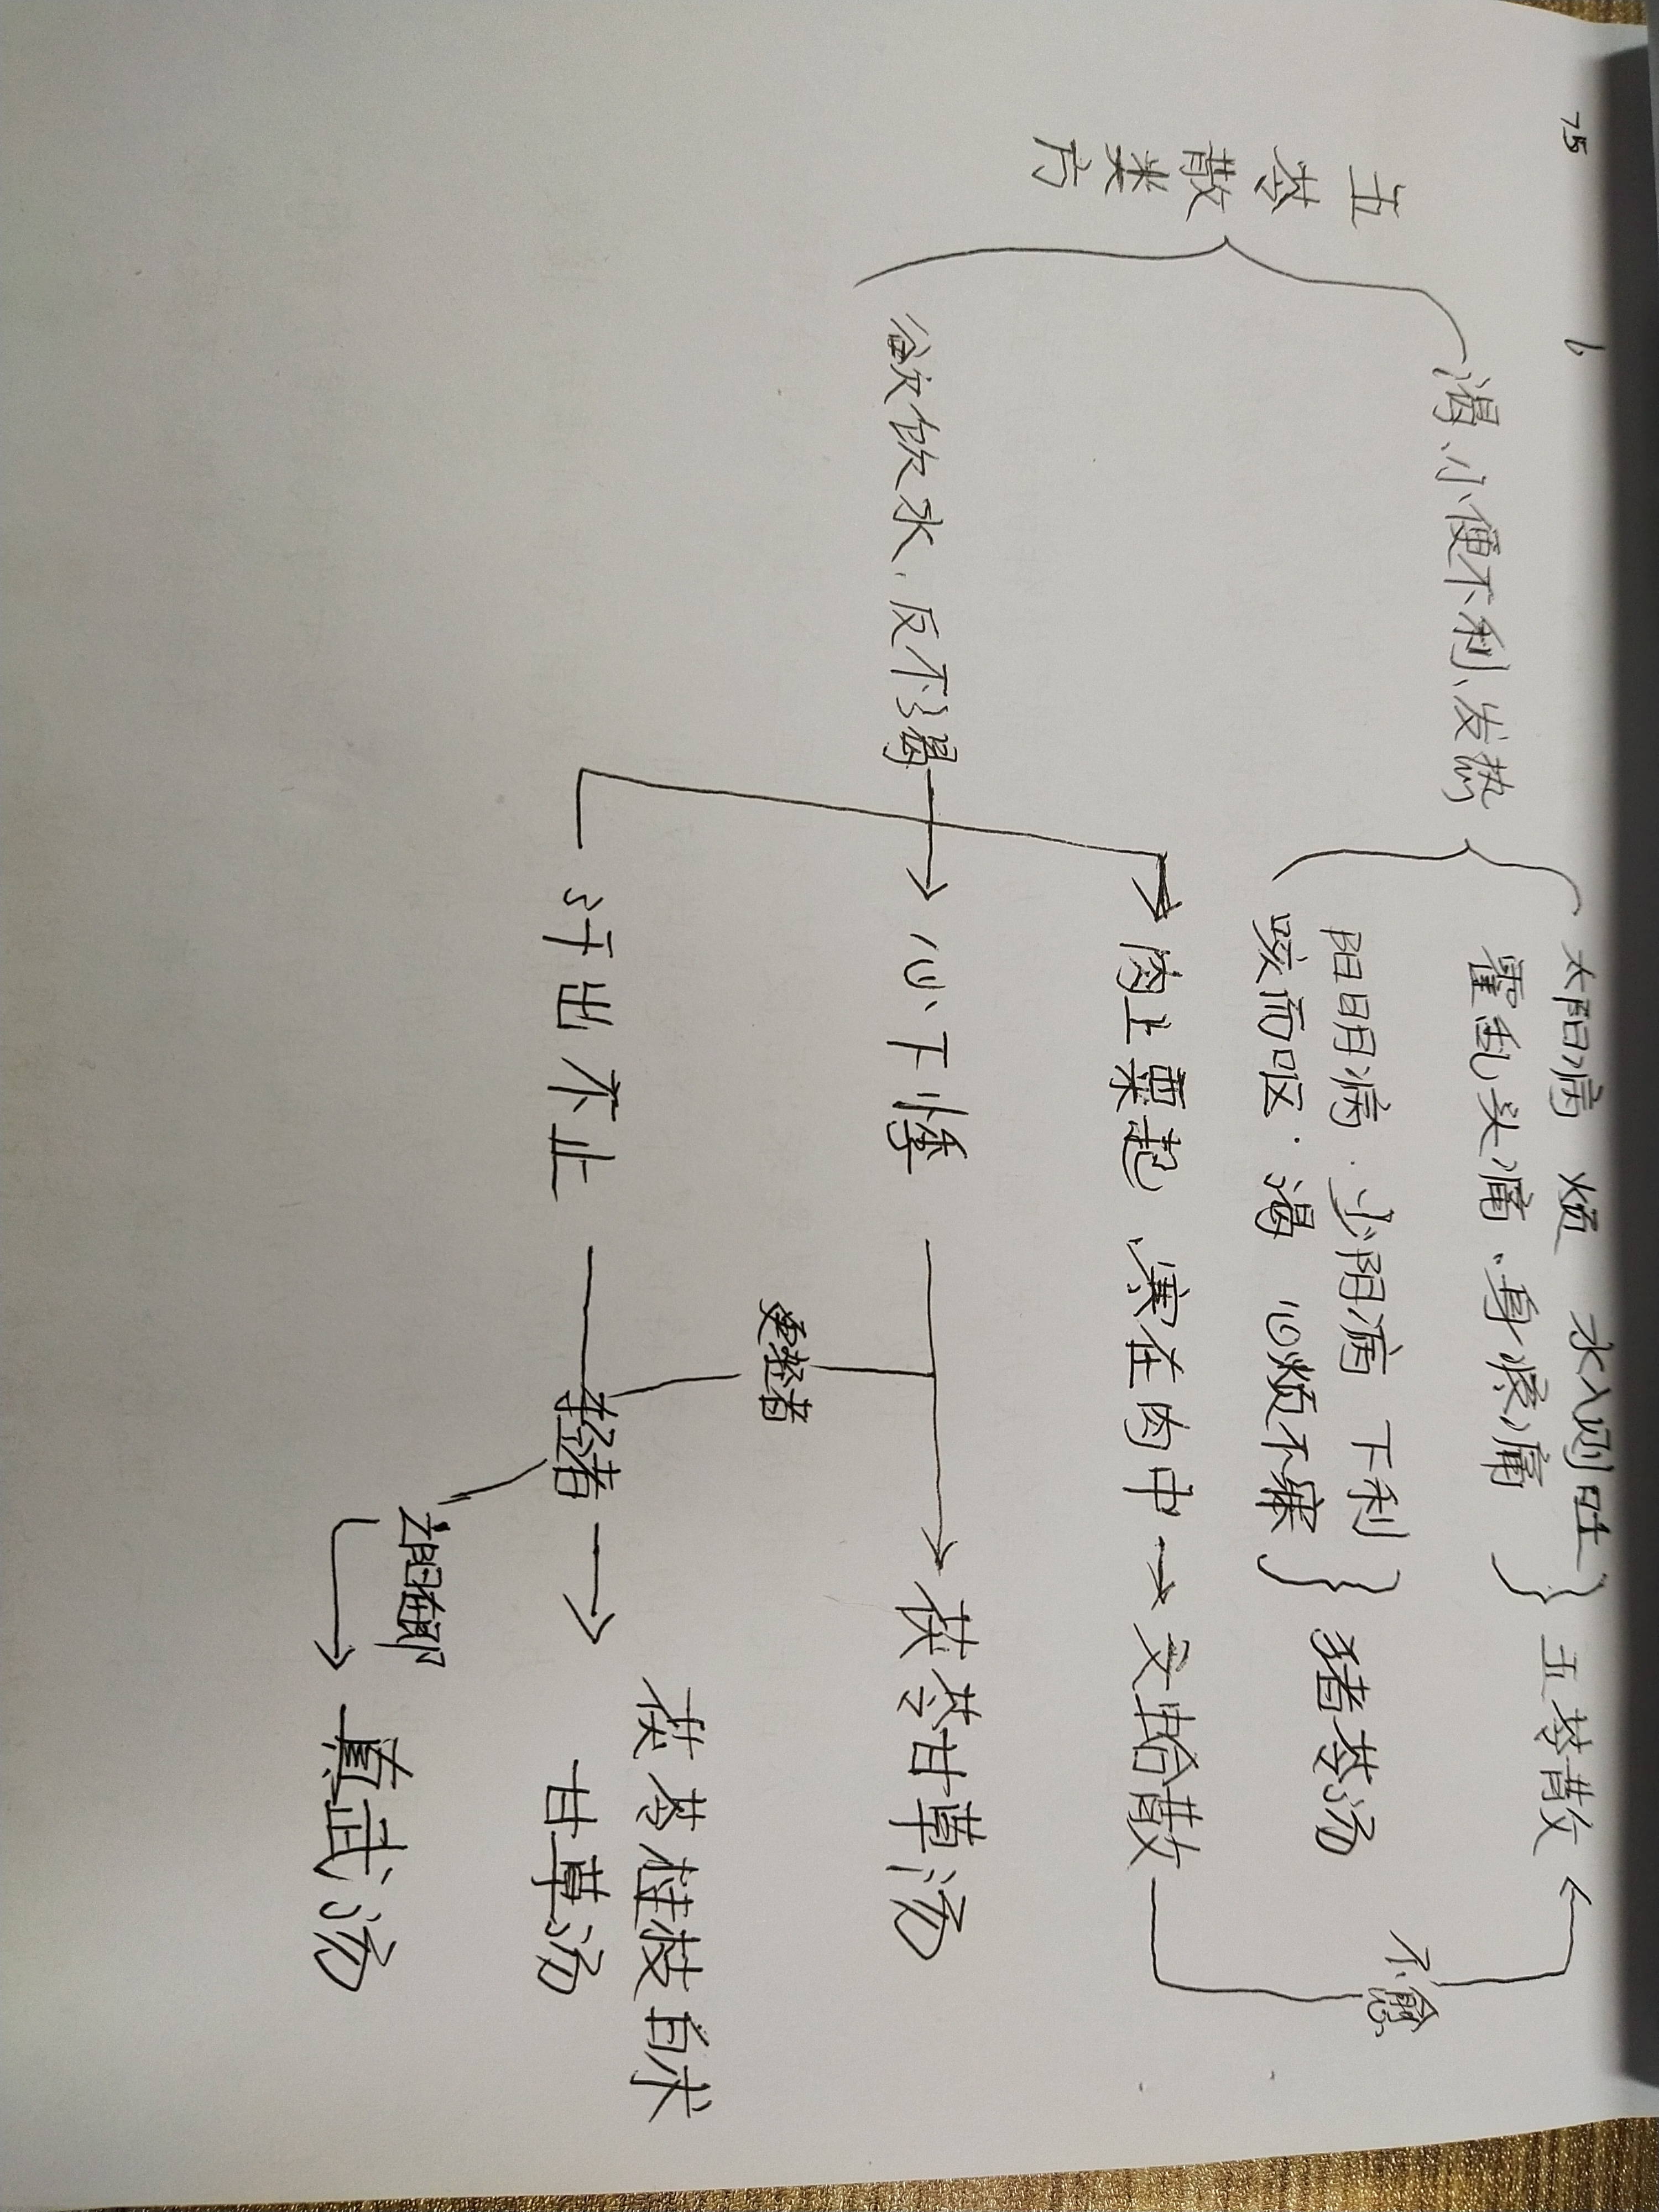 75 6
五苓散类方
渴、小便不利、发热
太阳病 烦 水入则吐
霍乱头痛、身疼痛
五苓散
阳明病·少阳病 下利
咳而呕·渴 心烦不寐
猪苓汤
不愈
欲饮水、反不渴
肉上粟起、寒在肉中
文蛤散
心下悸
茯苓甘草汤
更轻者
汗出不止
轻者
茯苓桂枝白术
甘草汤
真武汤